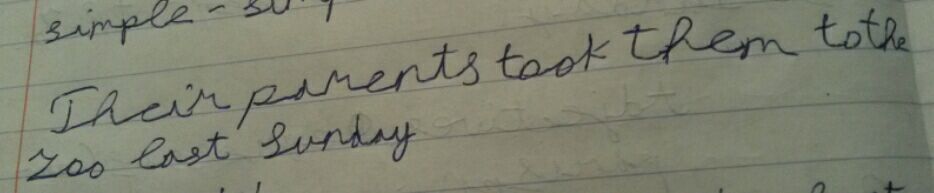 simple -
Their parents took them to the
zoo last Sunday